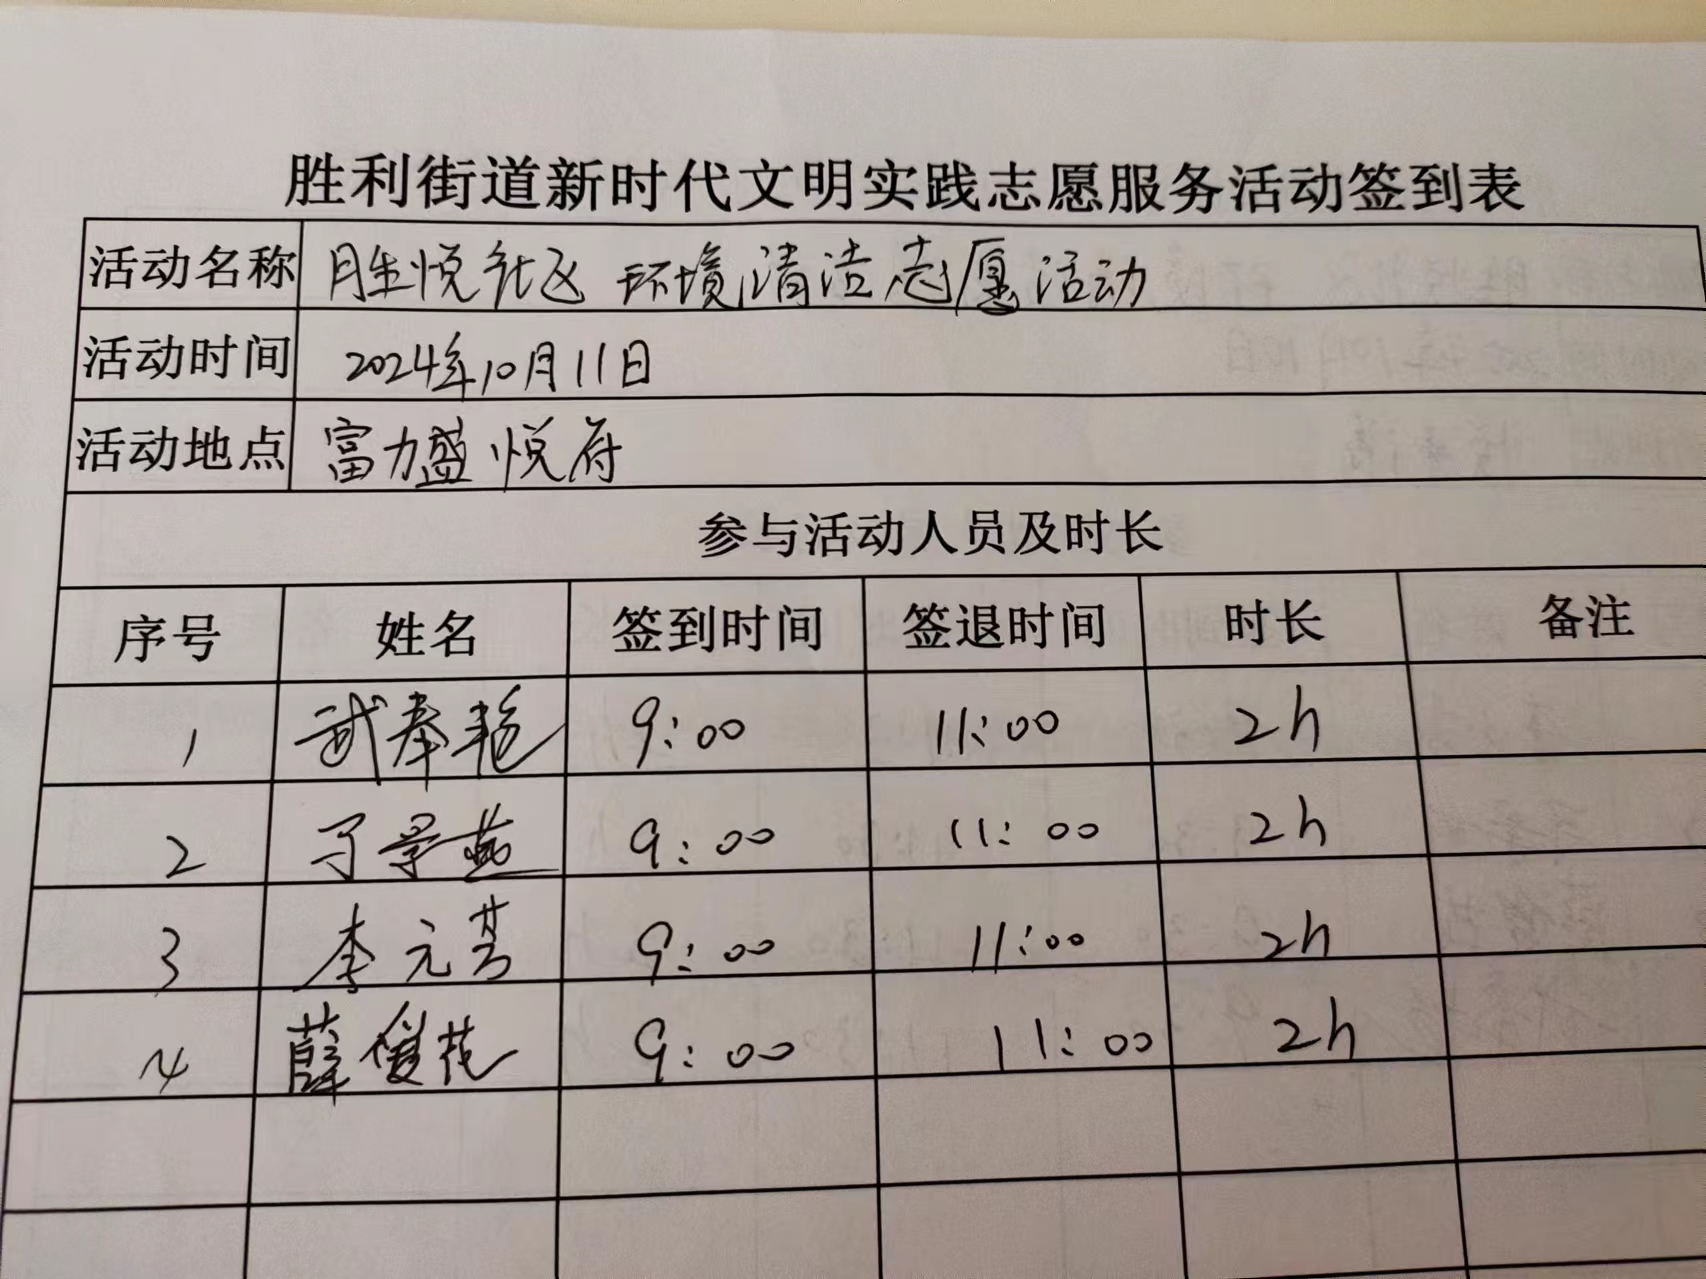 胜利街道新时代文明实践志愿服务活动签到表
活动名称 胜悦社区 环境清洁志愿活动
活动时间 2024年10月11日
活动地点 富力盛悦府
参与活动人员及时长
序号 姓名 签到时间 签退时间 时长 备注
1 武春艳 9:00 11:00 2h
2 丁景燕 9:00 11:00 2h
3 李元芳 9:00 11:00 2h
4 薛爱花 9:00 11:00 2h